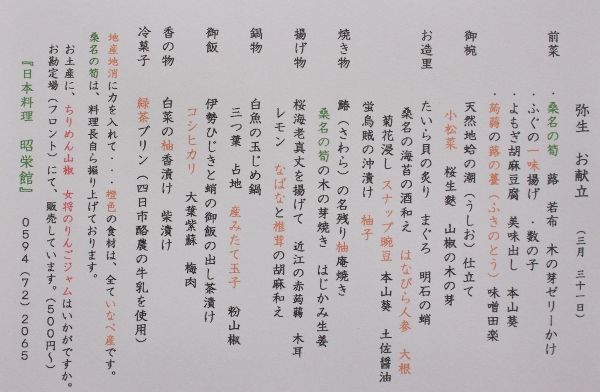 弥生　お献立　（三月　三十一日）
前菜　・桑名の筍　蕗　若布　木の芽ゼリーかけ
・ふぐの一味揚げ　・数の子
・よもぎ胡麻豆腐　美味出し　本山葵
・蒟蒻の蕗の薹（ふきのとう）味噌田楽
御椀　天然地蛤の潮（うしお）仕立て
小松菜　桜生麩　山椒の木の芽
お造里　たいら貝の炙り　まぐろ　明石の蛸
桑名の海苔の酒和え　はなびら人参　大根
菊花浸し　スナップ豌豆　本山葵　土佐醤油
蛍烏賊の沖漬け　柚子
焼き物　鰆（さわら）の名残り柚庵焼き
桑名の筍の木の芽焼き　はじかみ生姜
揚げ物　桜海老真丈を揚げて　近江の赤蒟蒻　木耳
レモン　なばなと椎茸の胡麻和え
鍋物　白魚の玉じめ鍋
三つ葉　占地　産みたて玉子　粉山椒
御飯　伊勢ひじきと蛸の御飯の出し茶漬け
コシヒカリ　大葉紫蘇　梅肉
香の物　白菜の柚香漬け　柴漬け
冷菓子　緑茶プリン（四日市酪農の牛乳を使用）
地産地消に力を入れて・・橙色の食材は、全ていなべ産です。
桑名の筍は、料理長自ら掘り上げております。
お土産に、ちりめん山椒　女将のりんごジャムはいかがですか。
お勘定場（フロント）にて、販売しています。（５００円～）
『日本料理　昭栄館』　０５９４（７２）２０６５